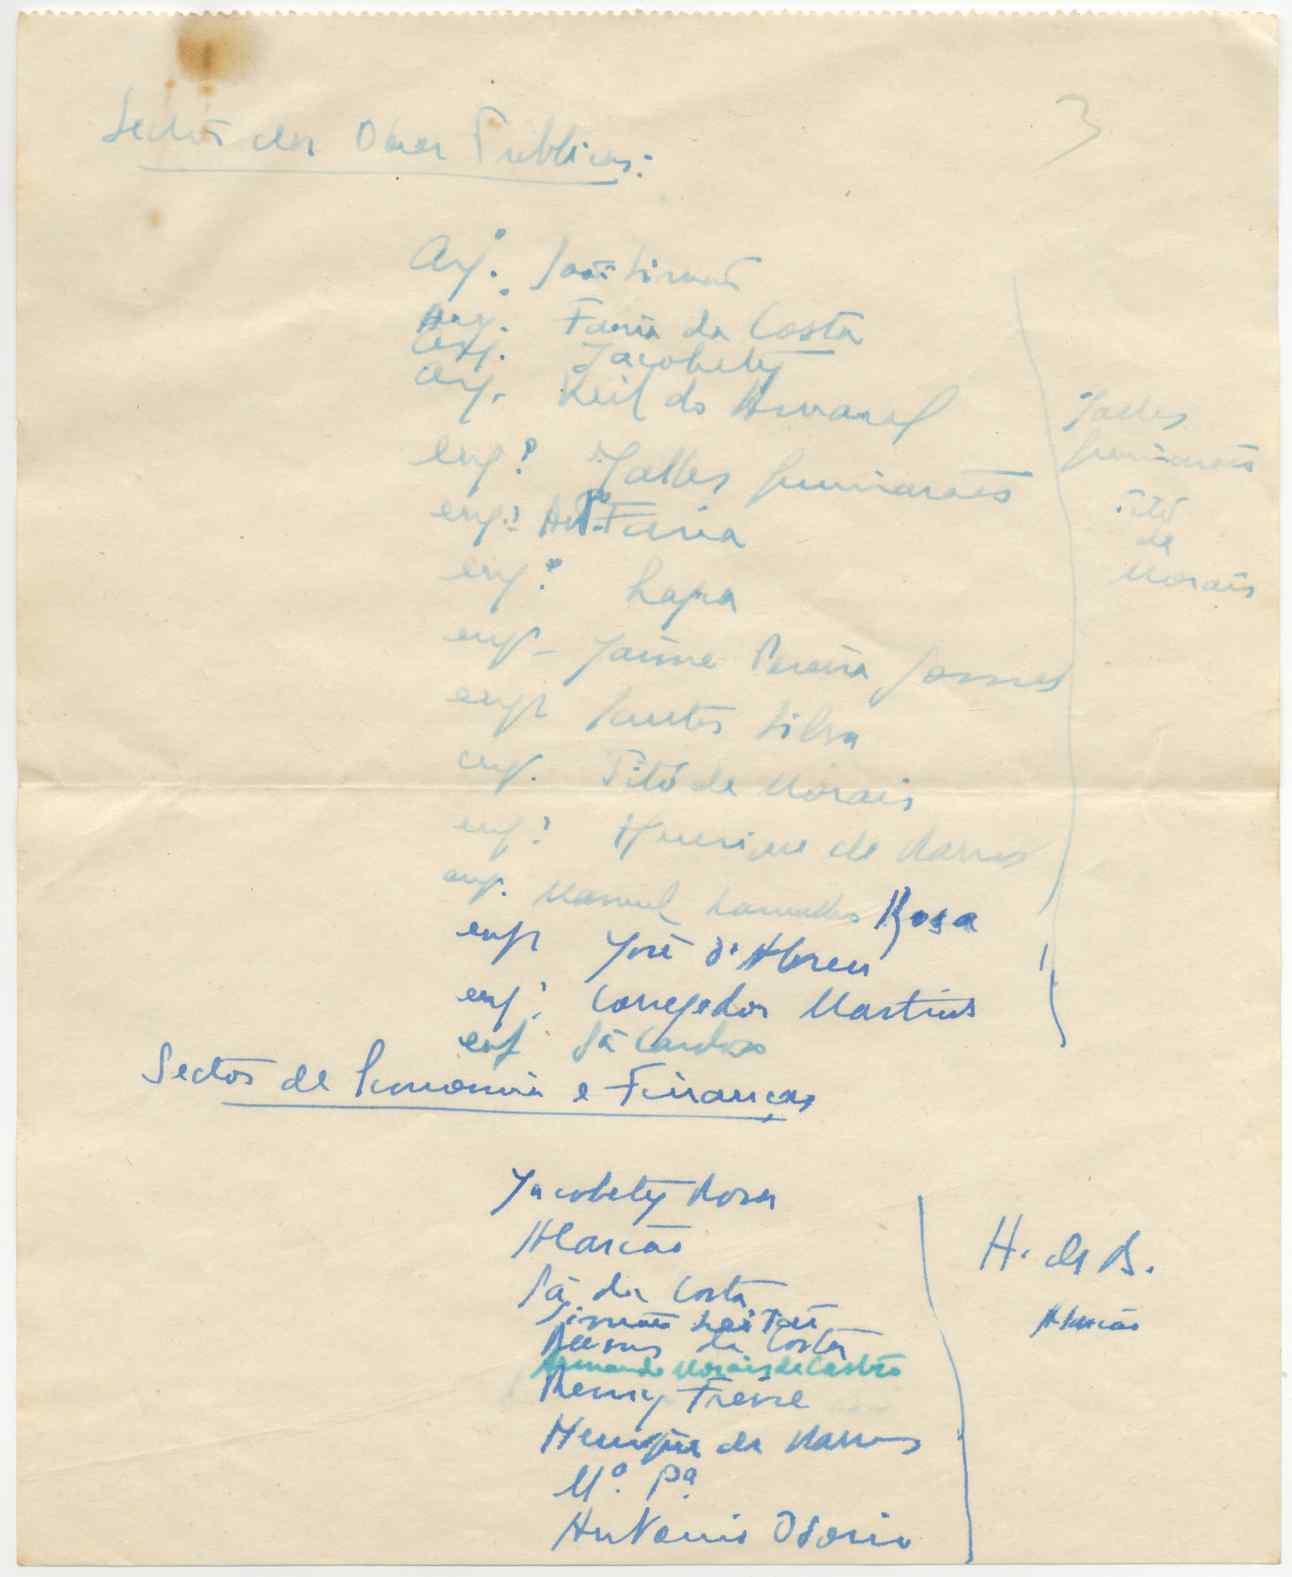 3
Sector das Obras Publicas:
Arqº. João Simões
Arqº. Faria da Costa
Arq. Jacobety
Arq. Keil do Amaral
engº Talles Guimarães
engº Antº Faria
engº Lapa
engº Jaime Pereira Gomes
engº Santos Silva
eng. Tito de Morais
engº Henrique de Barros
eng. Manuel Rosa
engº José d'Abreu
engº Corregedor Martins
eng Sá Cardoso
Talles
Guimarães
Tito
de
Morais
Sector de Economia e Finanças
Jacobety Rosa
Alarcão
Sá da Costa
Simões
Ramos da Costa
Armando Morais de Castro
Remy Freire
Henrique de Barros
Mº. Pª.
Antonio Osorio
H. de B.
Alarcão